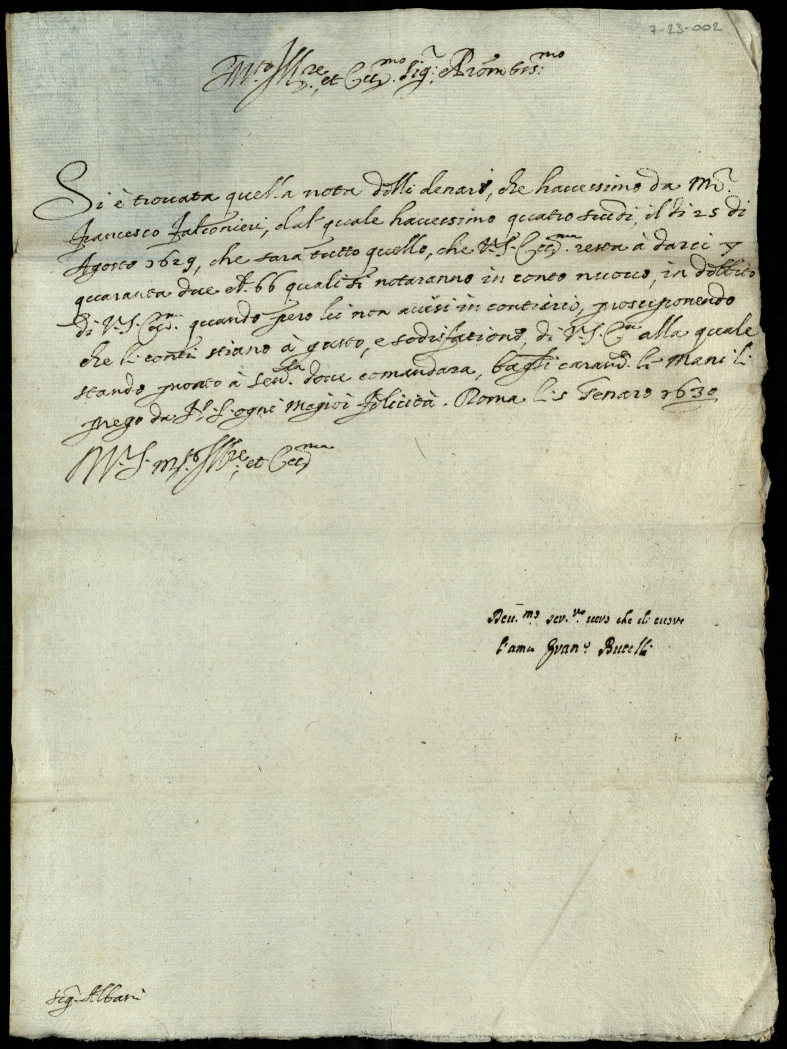 7-23-002
M.to Ill.re et Ecc.mo Sig.r
Si è trovata quella nota delli denari, che havessimo da M.r
Francesco Falconieri, dal quale havessimo quatro scudi, il dì 25 di
Agosto 1629, che sarà tutto quello, che V.S. Ecc.ma resta à darci
quaranta due 66 quali si notaranno in conto nuovo, in debbito
di V.S. Ecc.ma quando pero lei non avisi in contrario, prosuponendo
che li conti stiano à gusto, e sodisfatione, di V.S. Ecc.ma alla quale
stando pronto à dove comandara, le Mani li
prego da ogni Magior felicità. Roma li 5 Genaro 1630
V.S. M.to Ill.re et Ecc.ma
Dev.mo ser.re vero che di cuore
l'ama
Sig.r Albani